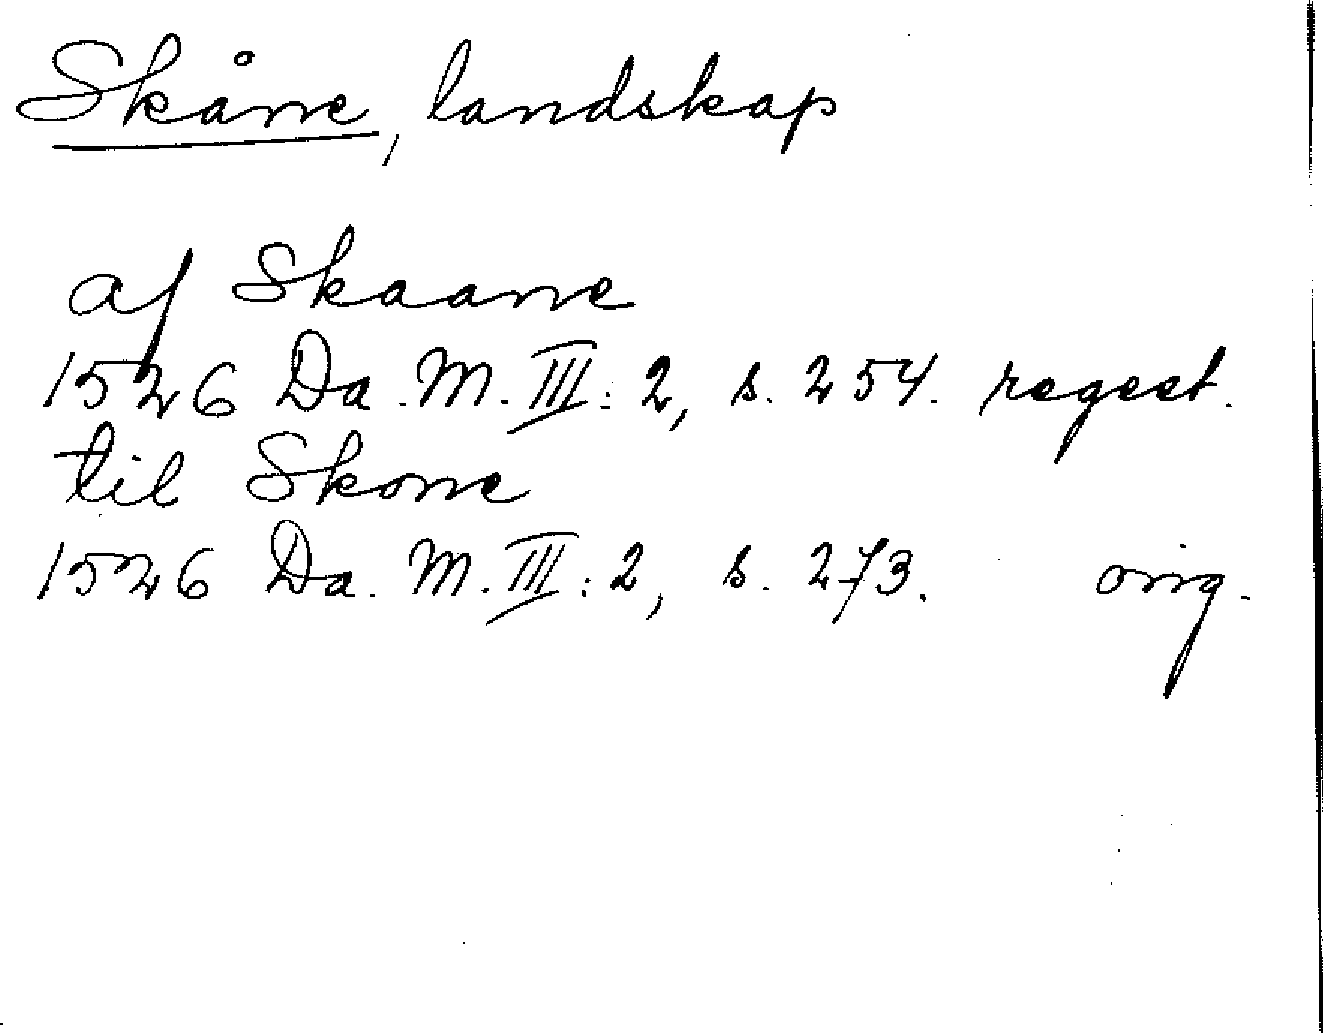 Skåne, landskap
af Skaane
1526 Da. M. III: 2, s. 254. regest.
til Skone
1526 Da. M. III: 2, s. 273. orig.